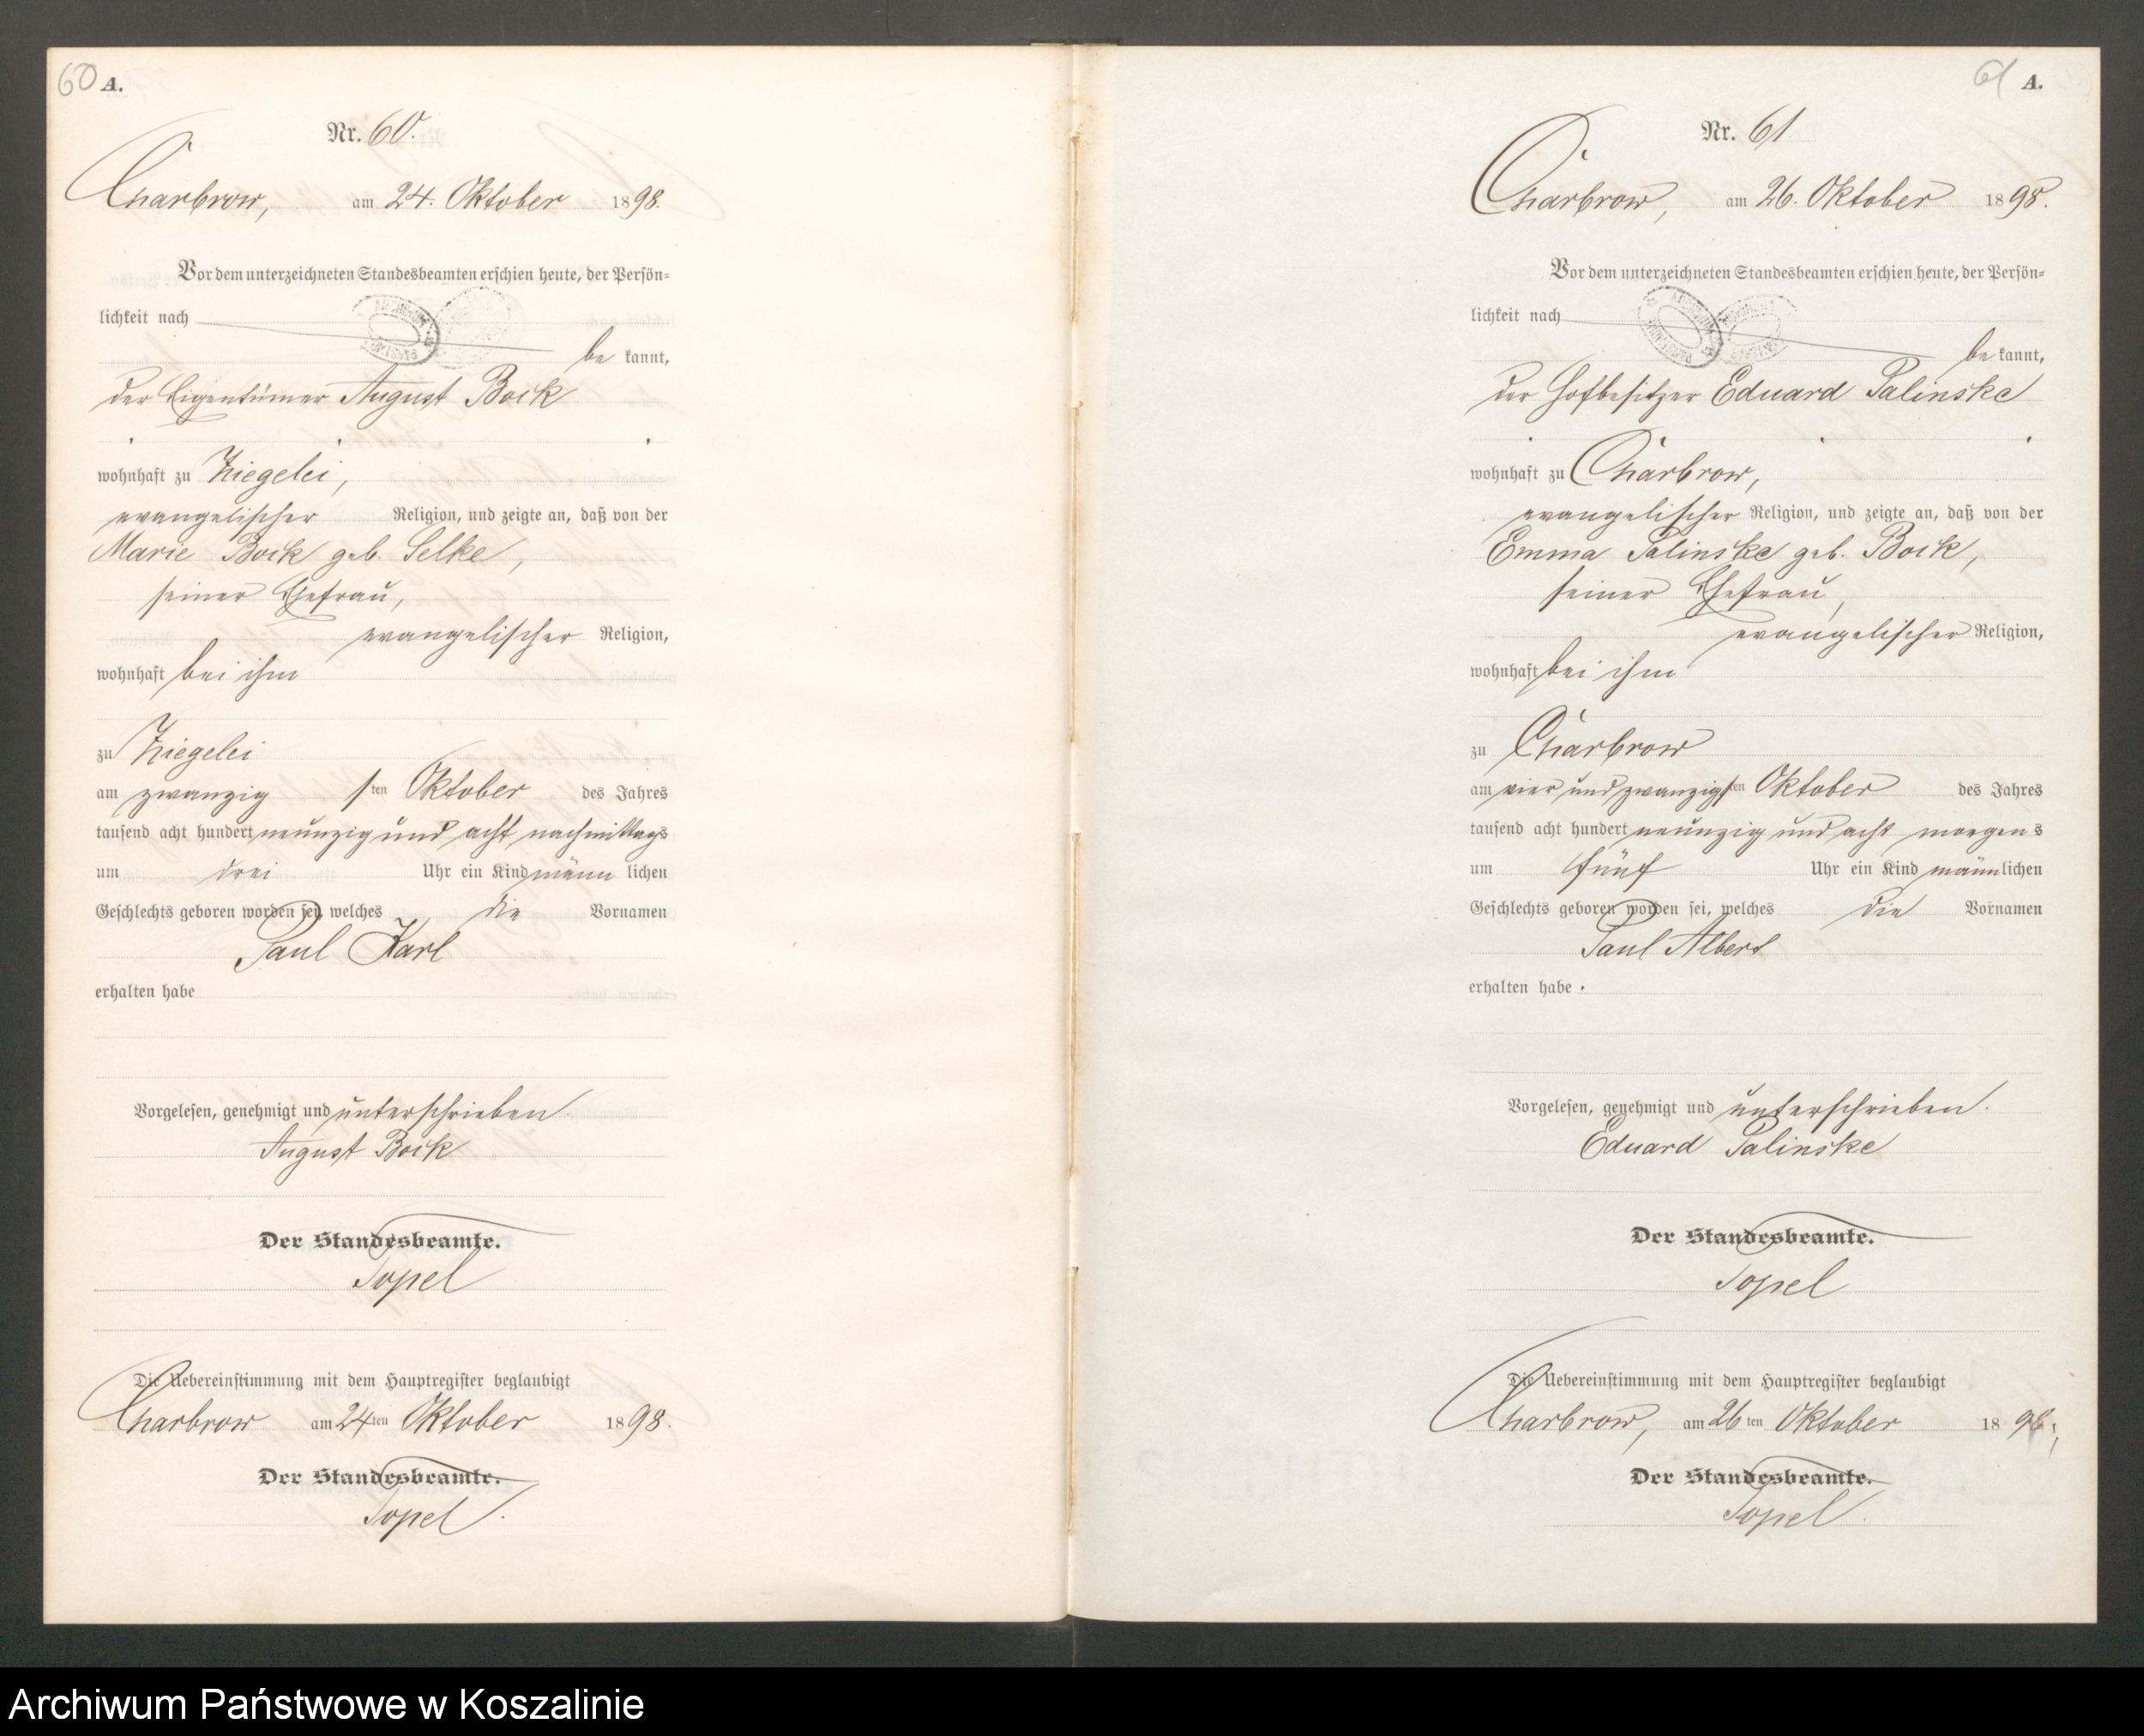 60 A.
Nr. 60.
Charbrow, am 24. Oktober 1898.
Vor dem unterzeichneten Standesbeamten erschien heute, der Persön-
lichkeit nach
be kannt,
der Eigentümer August Bock
wohnhaft zu Ziegelei,
evangelischer Religion, und zeigte an, daß von der
Marie Bock geb. Selke,
seiner Ehefrau,
evangelischer Religion,
wohnhaft bei ihm
zu Ziegelei
am zwanzigsten Oktober des Jahres
tausend acht hundert neunzig und acht nachmittags
um drei Uhr ein Kind männlichen
Geschlechts geboren worden sei, welches die Vornamen
Paul Karl
erhalten habe
Vorgelesen, genehmigt und unterschrieben.
August Bock
Der Standesbeamte.
Topel
Die Uebereinstimmung mit dem Hauptregister beglaubigt
Charbrow am 24ten Oktober 1898.
Der Standesbeamte.
Topel.
61 A.
Nr. 61
Charbrow, am 26. Oktober 1898.
Vor dem unterzeichneten Standesbeamten erschien heute, der Persön-
lichkeit nach
be kannt,
der Hofbesitzer Eduard Palinske
wohnhaft zu Charbrow,
evangelischer Religion, und zeigte an, daß von der
Emma Palinske geb. Bock,
seiner Ehefrau,
evangelischer Religion,
wohnhaft bei ihm
zu Charbrow
am vier und zwanzigsten Oktober des Jahres
tausend acht hundert neunzig und acht morgens
um fünf Uhr ein Kind männlichen
Geschlechts geboren worden sei, welches die Vornamen
Paul Albert
erhalten habe.
Vorgelesen, genehmigt und unterschrieben.
Eduard Palinske
Der Standesbeamte.
Topel
Die Uebereinstimmung mit dem Hauptregister beglaubigt
Charbrow, am 26ten Oktober 1898.
Der Standesbeamte.
Topel.
Archiwum Państwowe w Koszalinie